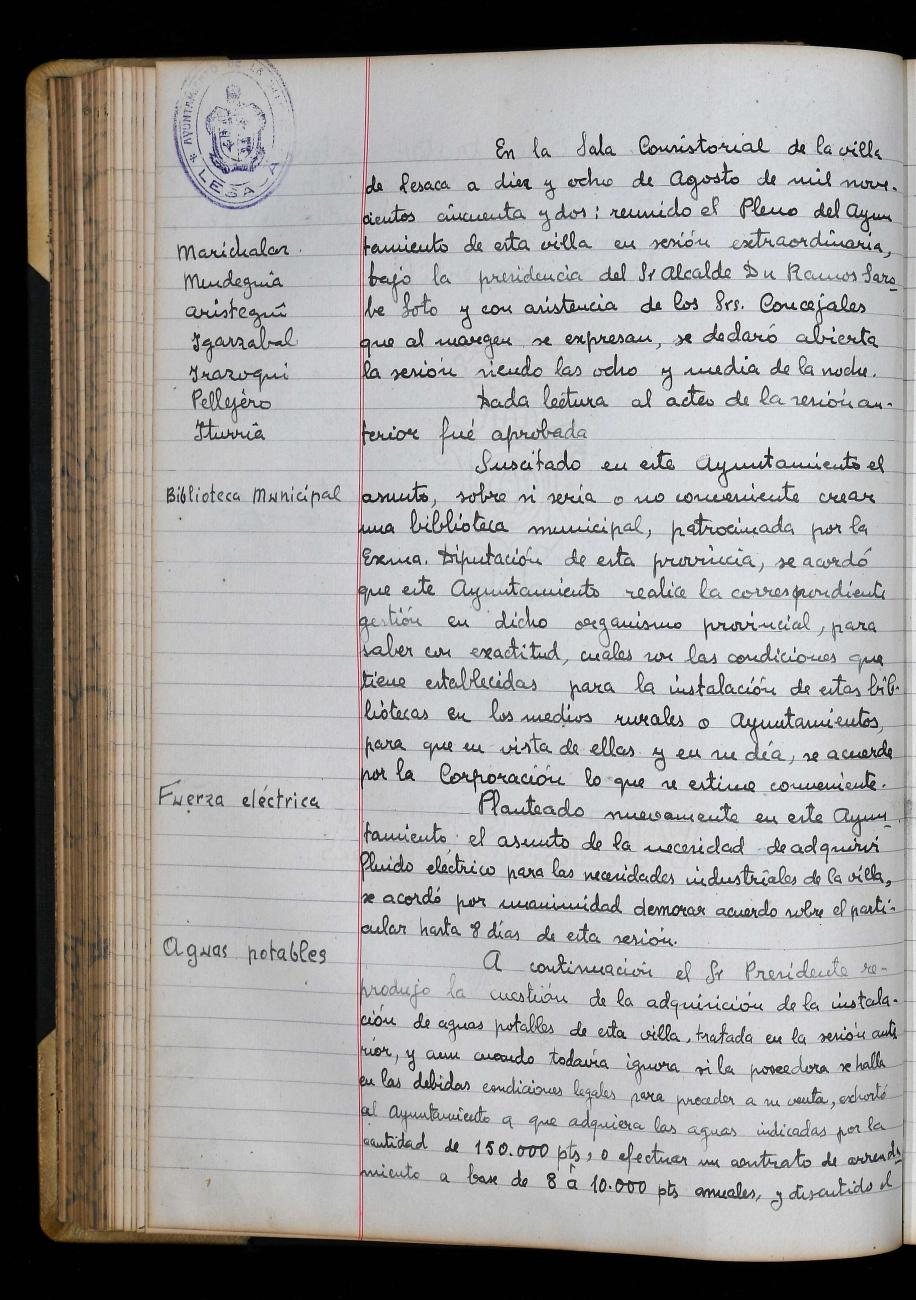 AYUNTAMIENTO DE LA
* LESACA *
En la Sala Consistorial de la villa
de Lesaca a diez y ocho de Agosto de mil nove-
cientos cincuenta y dos: reunido el Pleno del Ayun
tamiento de esta villa en sesión extraordinaria,
Marichalar.
bajo la presidencia del Sr Alcalde Dn Ramos Saro-
Mendeguia
be Soto y con asistencia de los Srs. Concejales
Aristegui
que al margen se expresan, se declaró abierta
Igarzabal
la sesión siendo las ocho y media de la noche.
Irazoqui
Dada lectura al acta de la sesión an-
Pellejero
terior fué aprobada
Iturria
Suscitado en este Ayuntamiento el
Biblioteca Municipal
asunto, sobre si sería o no conveniente crear
una biblioteca municipal, patrocinada por la
Exma. Diputación de esta provincia, se acordó
que este Ayuntamiento realice la correspondiente
gestión en dicho organismo provincial, para
saber con exactitud, cuales son las condiciones que
tiene establecidas para la instalación de estas bib-
liotecas en los medios rurales o Ayuntamientos,
para que en vista de ellas y en su día, se acuerde
por la Corporación lo que se estime conveniente.
Fuerza eléctrica
Planteado nuevamente en este Ayun-
tamiento el asunto de la necesidad de adquirir
fluido eléctrico para las necesidades industriales de la villa,
se acordó por unanimidad demorar acuerdo sobre el parti-
cular hasta 8 días de esta sesión.
Aguas potables
A continuación el Sr Presidente re-
produjo la cuestión de la adquisición de la instala-
ción de aguas potables de esta villa, tratada en la sesión ante
rior, y aun cuando todavía ignora si la poseedora se halla
en las debidas condiciones legales para proceder a su venta, exhortó
al Ayuntamiento a que adquiera las aguas indicadas por la
cantidad de 150.000 pts, o efectuar un contrato de arrenda-
miento a base de 8 à 10.000 pts anuales, y discutido el